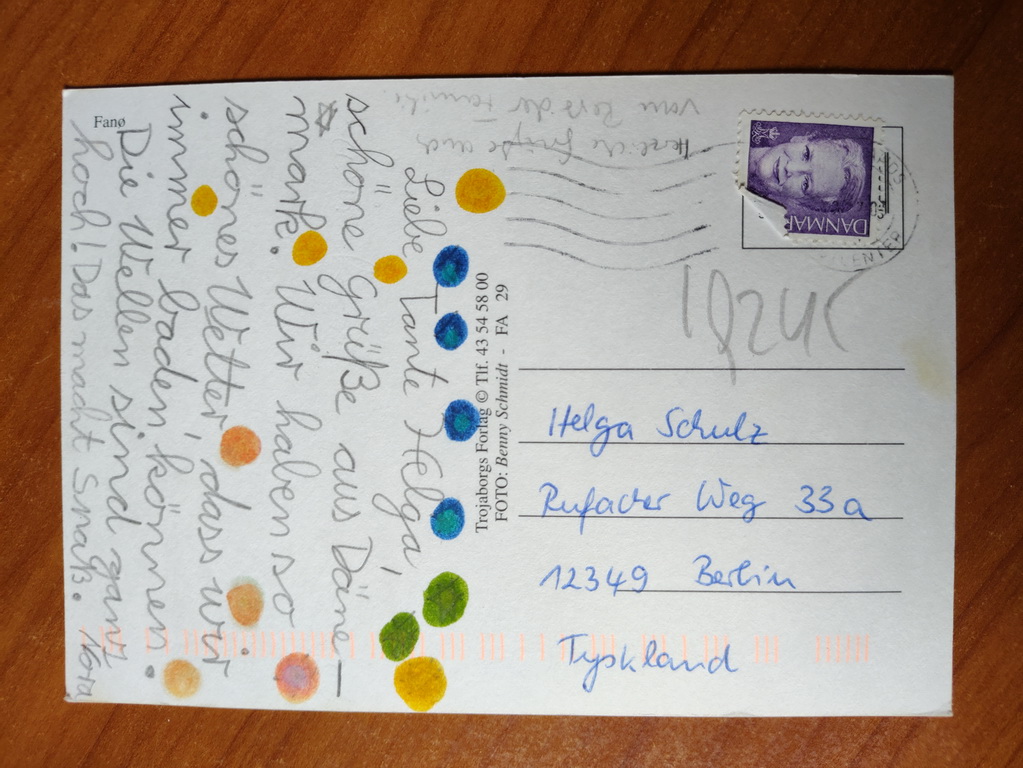 Fanø
Liebe Tante Helga,
schöne Grüße aus Däne-
mark. Wir haben so
schönes Wetter, dass wir
immer baden können.
Die Wellen sind ganz
hoch! Das macht Spaß.
Nora
der Familie
Trojaborgs Forlag © Tlf. 43 54 58 00
FOTO: Benny Schmidt - FA 29
DANMARK
Helga Schulz
Rufacher Weg 33a
12349 Berlin
Tyskland